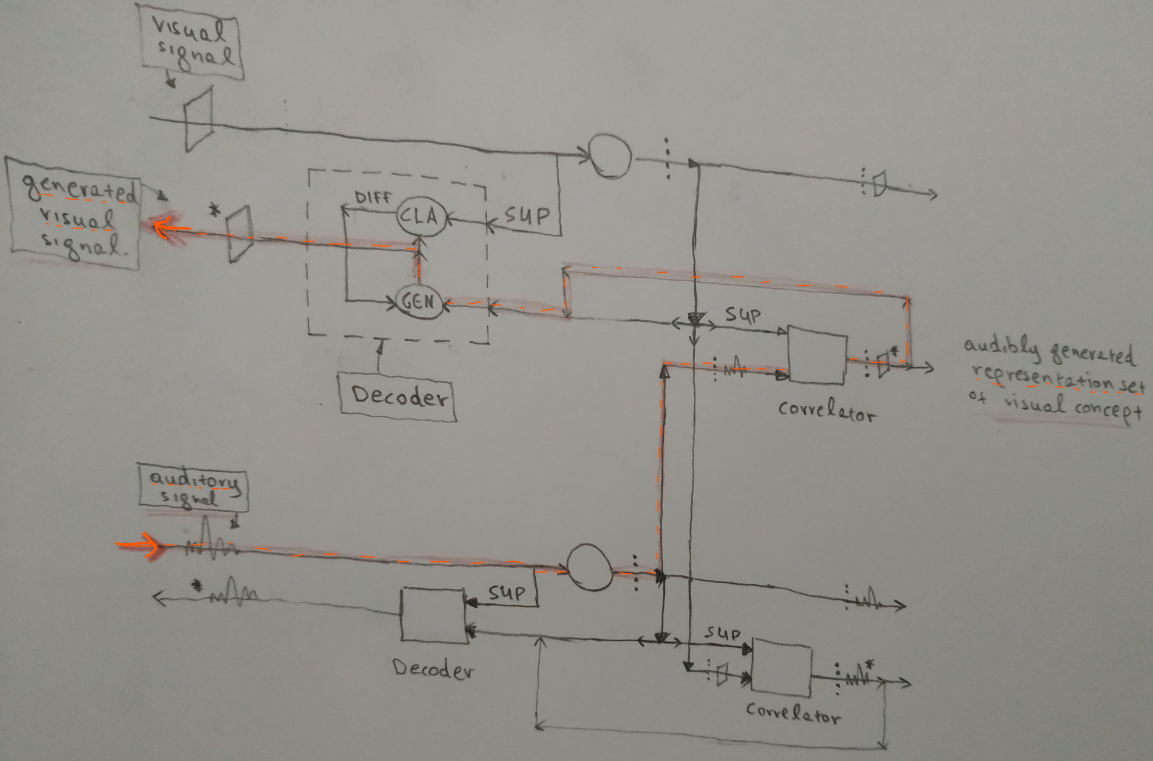 visual
signal
generated
visual
signal.
*
DIFF
CLA
SUP
GEN
Decoder
SUP
*
Correlator
audibly generated
representation set
of visual concept
auditory
signal
*
SUP
Decoder
SUP
*
Correlator